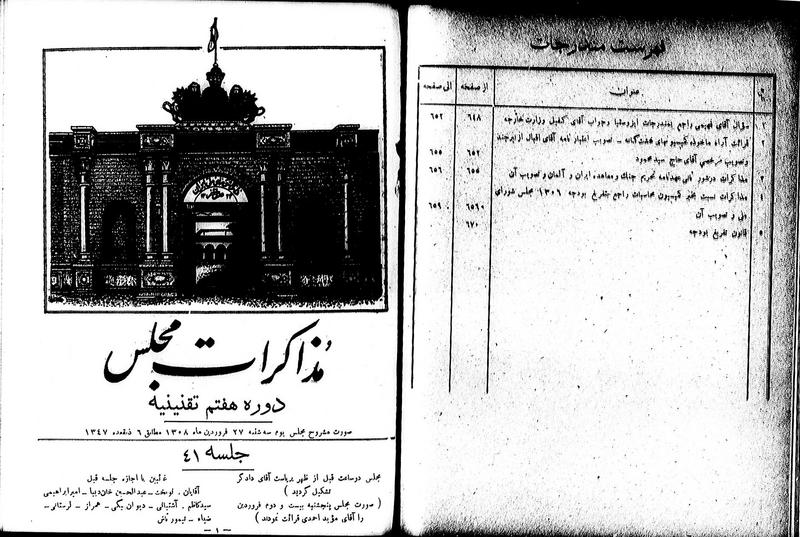 مذاکرات مجلس
دوره هفتم تقنینیه
صورت مشروح مجلس یوم سه شنبه ۲۷ فروردین ماه ۱۳۰۸ مطابق ۶ ذیقعده ۱۳۴۷
جلسه ۴۱
مجلس دو ساعت قبل از ظهر بریاست آقای دادگر
تشکیل گردید )
( صورت مجلس پنجشنبه بیست و دوم فروردین
را آقای مؤید احمدی قرائت نمودند )
غائبین با اجازه جلسه قبل
آقایان . لوسخت - عبدالحسین خان دیبا - امیرابراهیمی
سیدکاظم . آشتیانی - دیوان بیگی - همراز - لرستانی -
ضیاء - تیمور تاش
- ۱ -
فهرست مندرجات
عنوان از صفحه الی صفحه
۱ سؤال آقای فهیمی راجع بمندرجات ایزوستیا وجواب آقای کفیل وزارت خارجه ۶۴۸ ۶۵۲
۲ قرائت آراء مأخوذه کمیسیونهای هفت گانه - تصویب اعتبار نامه آقای اقبال از بیرجند
وتصویب مرخصی آقای حاج سید محمود ۶۵۲ ۶۵۵
۳ مذاکرات در شور ثانی عهدنامه تحریم جنگ و معاهده ایران و آلمان و تصویب آن ۶۵۵ ۶۵۶
۴ مذاکرات نسبت بخبر کمیسیون محاسبات راجع بتفریغ بودجه ۱۳۰۶ مجلس شورای
ملی و تصویب آن ۶۵۶ ۶۵۹
۵ قانون تفریغ بودجه ۶۷۰